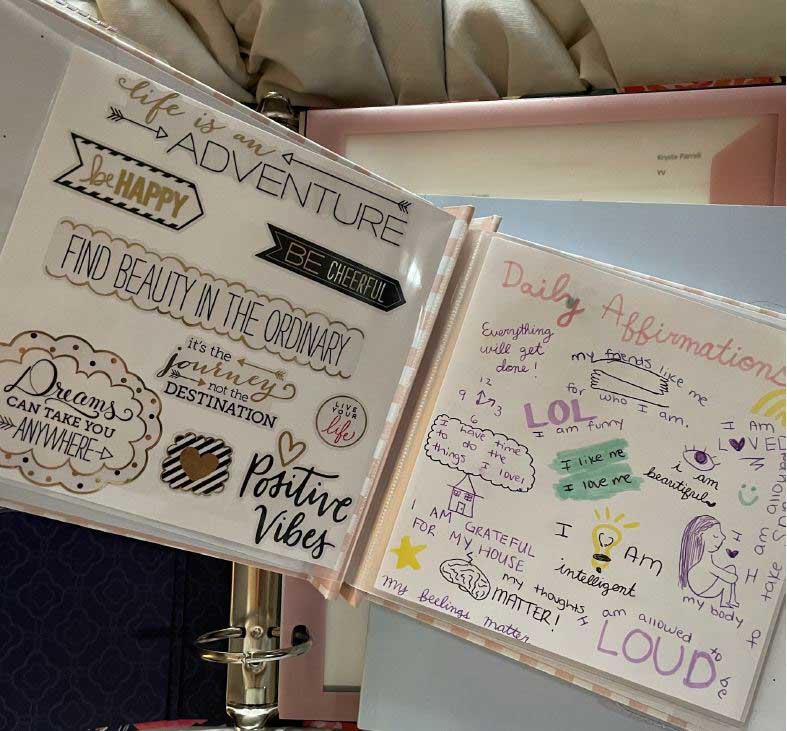 life is an
ADVENTURE
be HAPPY
BE CHEERFUL
FIND BEAUTY IN THE ORDINARY
it's the
journey
not the
DESTINATION
Dreams
CAN TAKE YOU
ANYWHERE
LIVE
YOUR
life
Positive
Vibes
Krystle Parrell
VV
Daily Affirmations
Everything
will get
done!
12
9 3
6
my friends like me
for who I am.
LOL
I am funny
I AM
LOVED
I have time
to do the
things I love!
I like me
I love me
i am
beautiful
I AM GRATEFUL
FOR MY HOUSE
I AM
intelligent
I
my body
I am allowed to
take
my thoughts
MATTER!
my feelings matter
I am allowed to be
LOUD